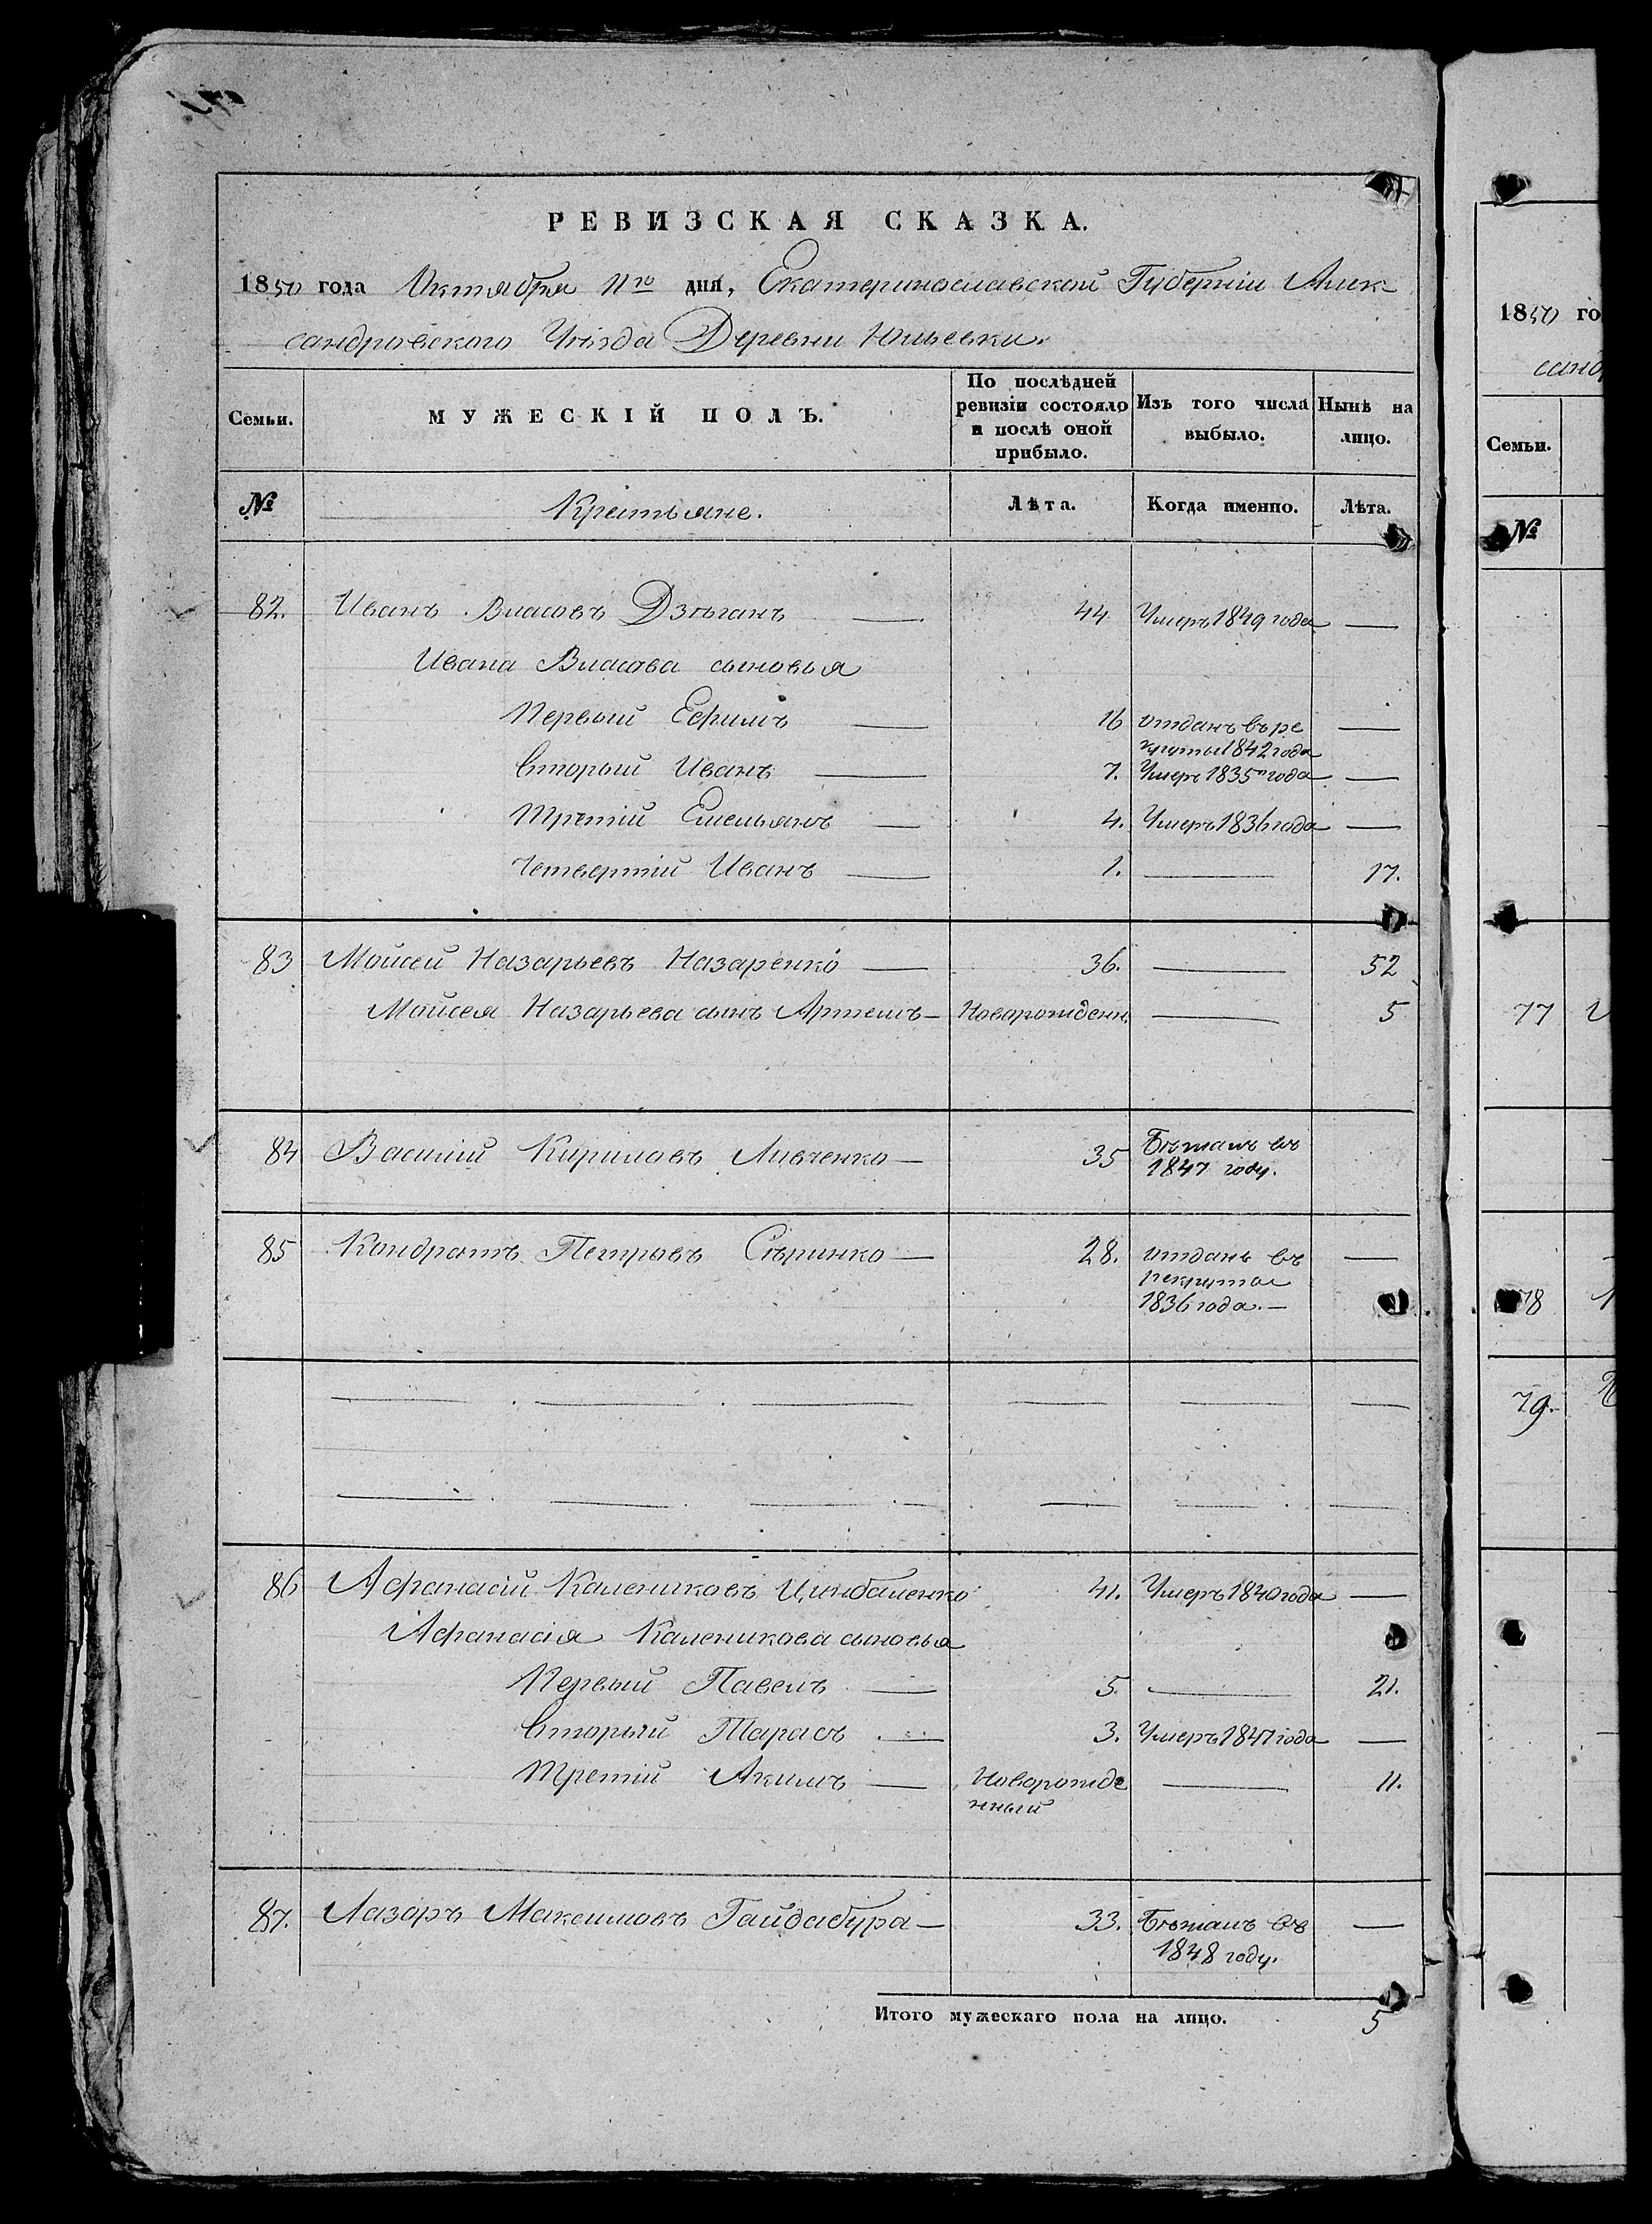 РЕВИЗСКАЯ СКАЗКА.
1850 года Октября 11го дня, Екатеринославской Губерніи Алек
сандровского Уѣзда Деревни Юльевки.
Семьи. МУЖЕСКІЙ ПОЛЪ. По послѣдней ревизіи состояло и послѣ оной прибыло. Изъ того числа выбыло. Нынѣ на лицо.
№ Крестьяне. Лѣта. Когда именно. Лѣта.
82. Иванъ Власовъ Дзюганъ — 44 Умеръ 1849 года —
Ивана Власова сыновья
Первый Ефимъ — 16 отданъ въ ре
круты 1842 года —
Вторый Иванъ — 7. Умеръ 1835 года —
Третій Емельянъ — 4. Умеръ 1836 года —
Четвертій Иванъ — 1. — 17.
83 Мойсей Назарьевъ Назаренко — 36. — 52
Мойсея Назарьева сынъ Артемъ — Новорожденн. — 5
84 Василій Кириловъ Ливченко — 35 Бѣжалъ въ
1847 году.
85 Кондратъ Петровъ Сѣринко — 28. отданъ въ —
рекруты
1836 года. —
86 Афанасій Калениковъ Цимбаленко 41. Умеръ 1840 года —
Афанасія Каленикова сыновья
Первый Павелъ — 5 — 21.
Вторый Тарасъ — 3. Умеръ 1847 года —
Третій Акимъ — Новорожде — 11.
нный
87. Лазарь Максимовъ Гайдабура — 33. Бѣжалъ въ —
1848 году.
Итого мужескаго пола на лицо. 5
1850 го
санд
Семьи.
№
77
78
79.